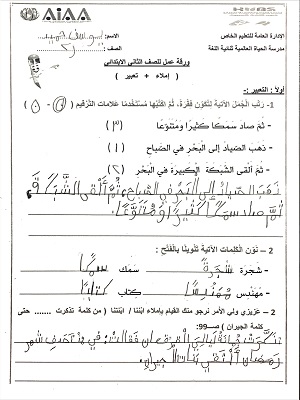 AIAA
الإدارة العامة للتعليم الخاص
مدرسة الحياة العالمية ثنائية اللغة
الاسم:
الصف:
ورقة عمل للصف الثاني الابتدائي
( إملاء + تعبير )
أولاً : التعبير:-
1- رتب الجمل الآتية لتكون فقرة، ثم اكتبها مستخدما علامات الترقيم ( ، . )
- ثم صاد سمكا كثيرا ومتنوعا (٣)
- ذهب الصياد إلى البحر في الصباح (١)
- ثم ألقى الشبكة الكبيرة في البحر (٢)
ذهب الصياد إلى البحر في الصباح، ثم ألقى الشبكة
ثم صاد سمكا كثيرا ومتنوعا.
2 – نون الكلمات الآتية تنوينا بالفتح :
- شجرة شجرةً - سمك سمكاً
- مهندس مهندساً - كتاب كتاباً
2 – عزيزي ولي الأمر نرجو منك القيام بإملاء ابننا / ابنتنا ( من كلمة تذكرت ....... حتى
كلمة الجيران ) ص99:
تذكرت فقالت: في منتصف شهر
رمضان ألتقي بنات الجيران.